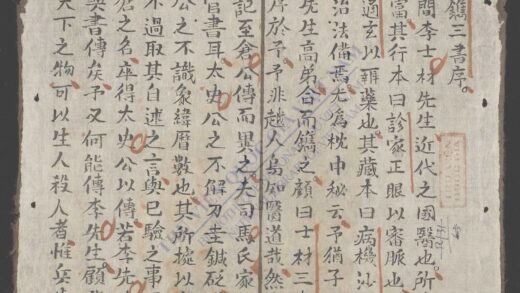 鐫三書序。
間李士材先生近代之國醫也所
富其行本曰診家正眼以審脈也
通玄以辨藥也其藏本曰病機沙
治法備焉尤為枕中秘云予猶子
先生高弟合而鐫之顧曰士材三
序於予予非越人烏知醫道哉然
記至倉公傳而異之夫司馬氏家
官書耳太史公之不解刀圭鍼砭
公之不識象緯曆數也其所據以
不過取其自述之言與已驗之事
倉之名卒得太史公以傳若李先
書傳矣予又何能傳李先生顧
天下之物可以生人殺人者惟兵